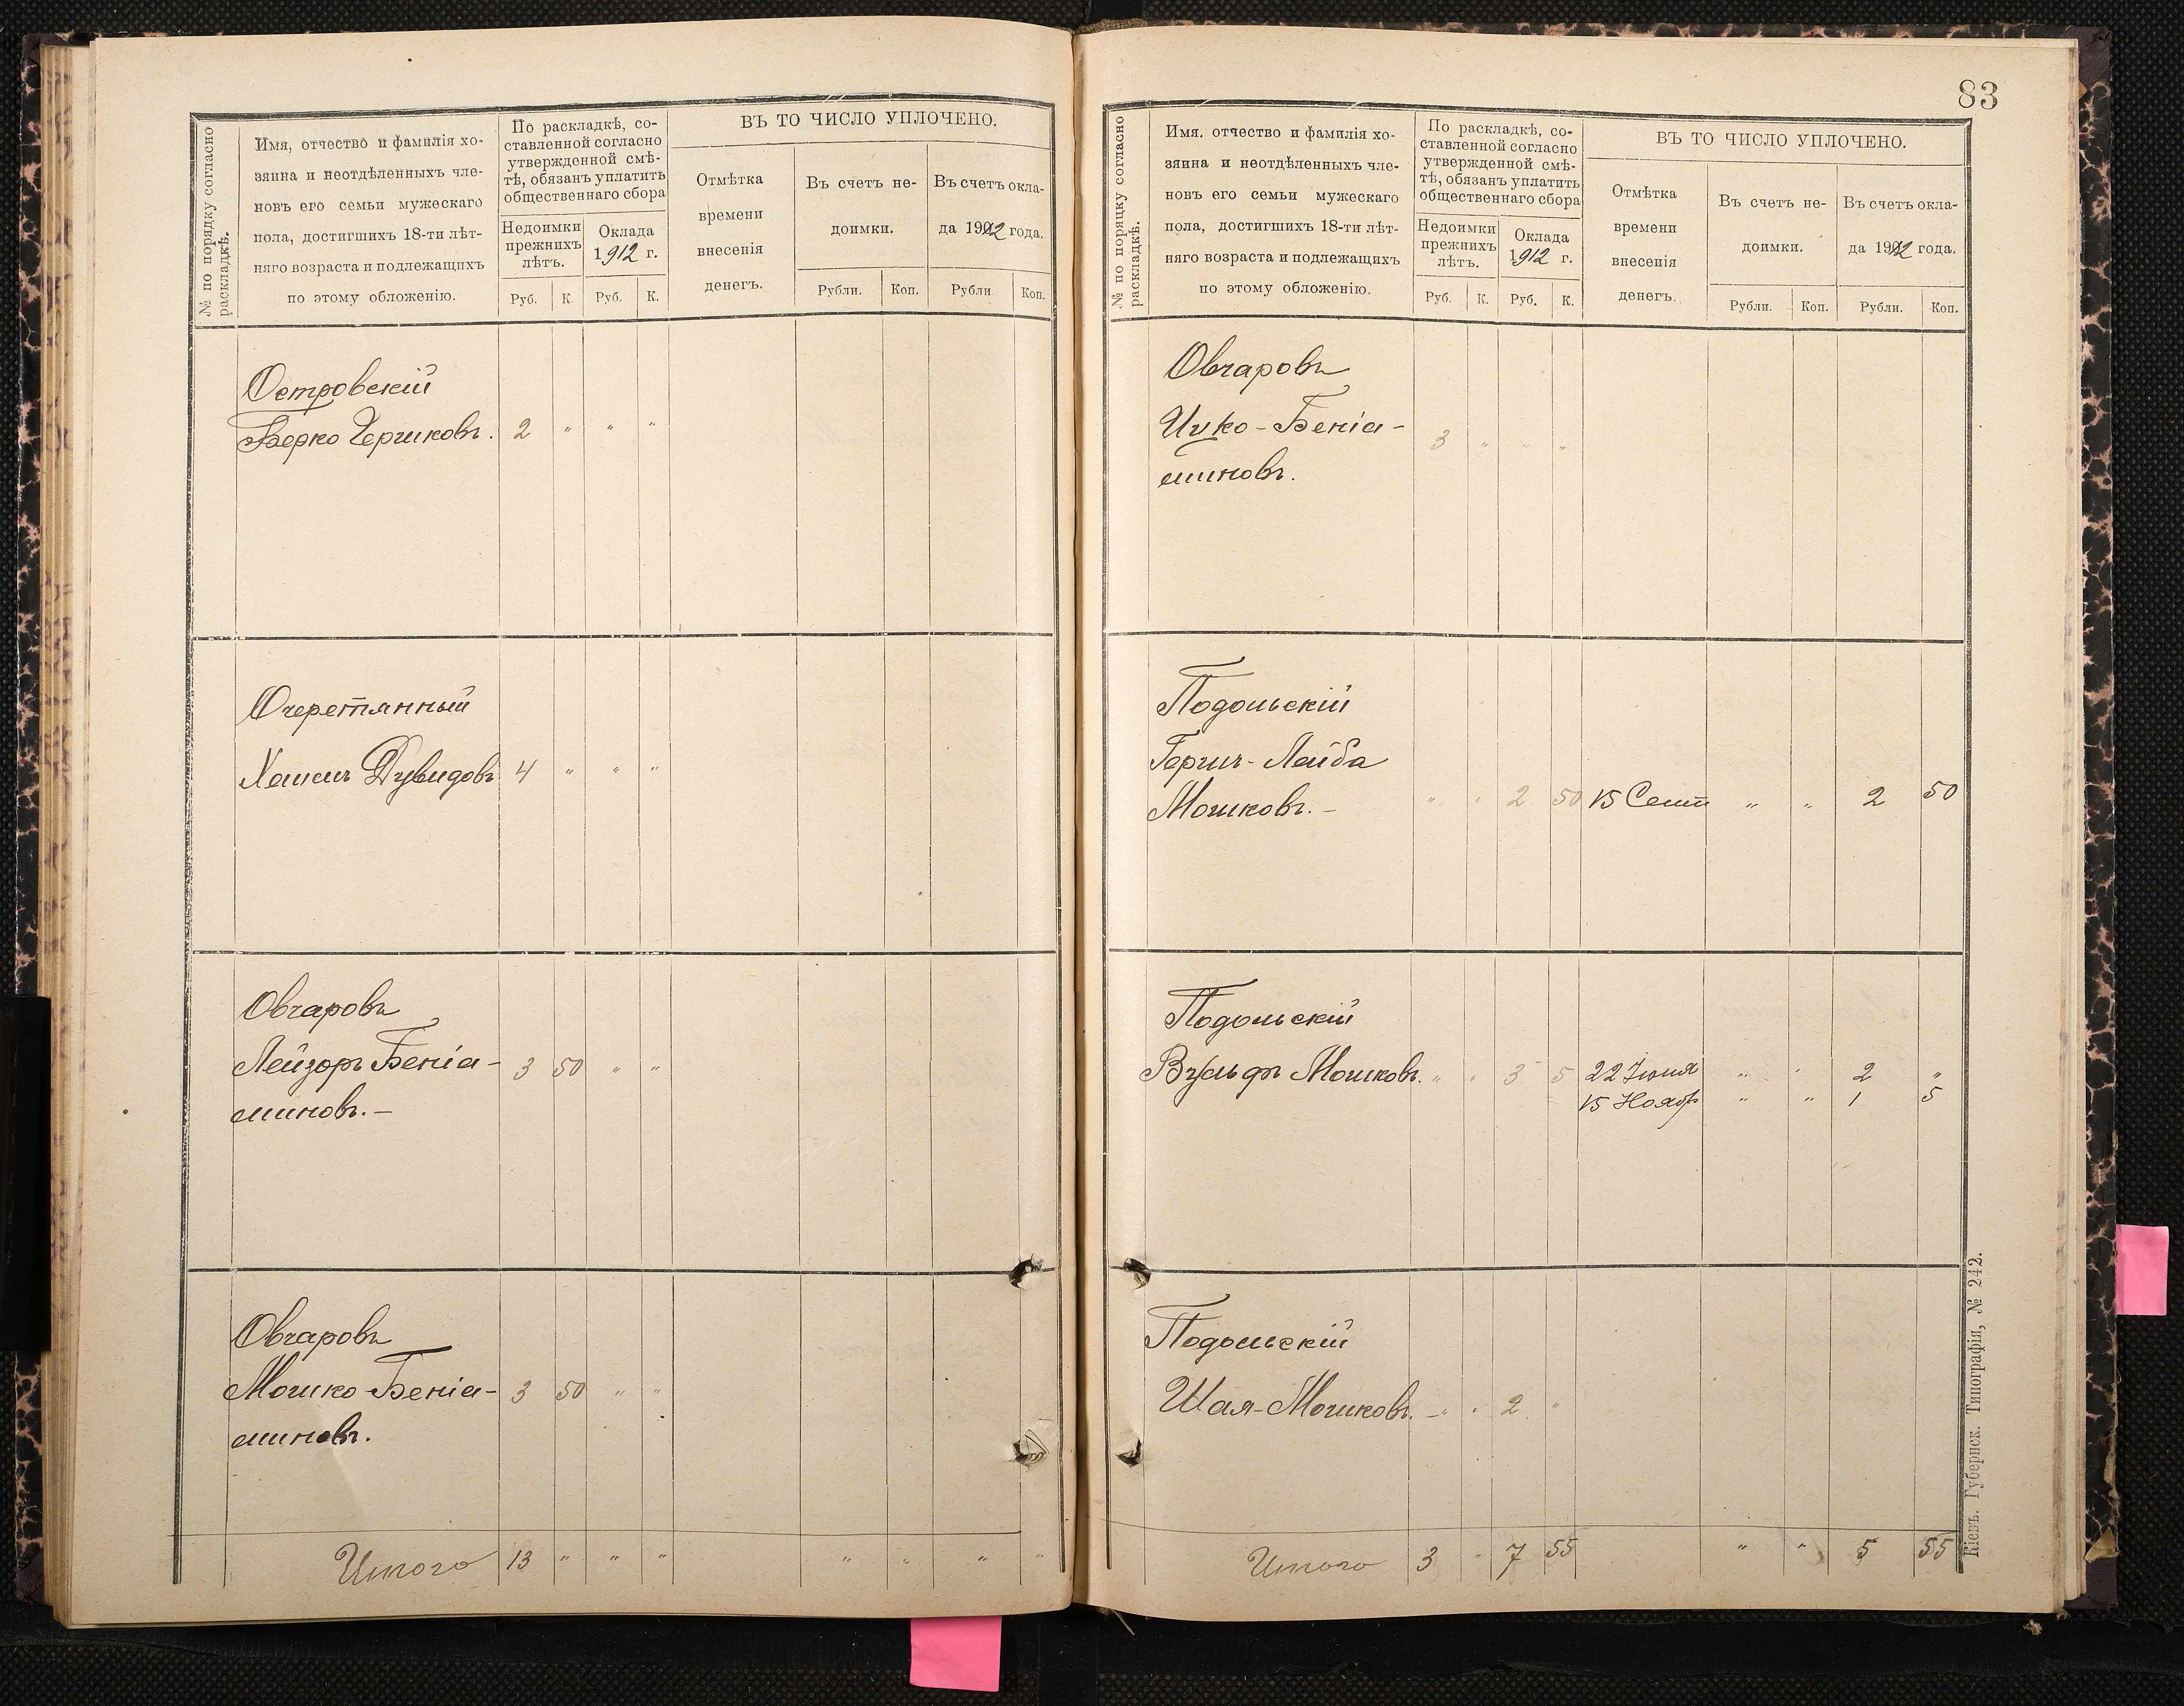 № по порядку согласно
раскладкѣ.
Имя, отчество и фамилія хо-
зяина и неотдѣленныхъ чле-
новъ его семьи мужескаго
пола, достигшихъ 18-ти лѣт-
няго возраста и подлежащихъ
по этому обложенію.
По раскладкѣ, со-
ставленной согласно
утвержденной смѣ-
тѣ, обязанъ уплатить
общественнаго сбора
Недоимки
прежнихъ
лѣтъ.
Оклада
1912 г.
Руб. К. Руб. К.
ВЪ ТО ЧИСЛО УПЛОЧЕНО.
Отмѣтка
времени
внесенія
денегъ.
Въ счетъ не-
доимки.
Въ счетъ окла-
да 1912 года.
Рубли. Коп. Рубли Коп.
Островскій
Берко Гершковъ. 2 " " "
Очеретянный
Хаимъ Дувидовъ 4 " " "
Овчаровъ
Лейзоръ Беніа- 3 50 " "
миновъ. —
Овчаровъ
Мошко-Беніа- 3 50 " "
миновъ.
Итого 13 " " " " " " "
83
№ по поряцку согласно
раскладкѣ.
Имя. отчество и фамилія хо-
зяина и неотдѣленныхъ чле-
новъ его семьи мужескаго
пола, достигшихъ 18-ти лѣт-
няго возраста и подлежащихъ
по этому обложенію.
По раскладкѣ, со-
ставленной согласно
утвержденной смѣ-
тѣ, обязанъ уплатить
общественнаго сбора
Недоимки
прежнихъ
лѣтъ.
Оклада
1912 г.
Руб. К. Руб. К.
ВЪ ТО ЧИСЛО УПЛОЧЕНО.
Отмѣтка
времени
внесенія
денегъ.
Въ счетъ не-
доимки.
Въ счетъ окла-
да 1912 года.
Рубли. Коп. Рубли. Коп.
Овчаровъ
Ицко-Беніа-
миновъ. 3 " " "
Подольскій
Гершъ-Лейба
Мошковъ. — " " 2 50 15 Сент " " 2 50
Подольскій
Вульфъ Мошковъ. " " 3 5 22 Іюня " " 2 "
15 Ноябр " " 1 5
Подольскій
Шая-Мошковъ. — " " 2 "
Итого 3 " 7 55 " " 5 55
Кіевъ. Губернск. Типографія, № 242.